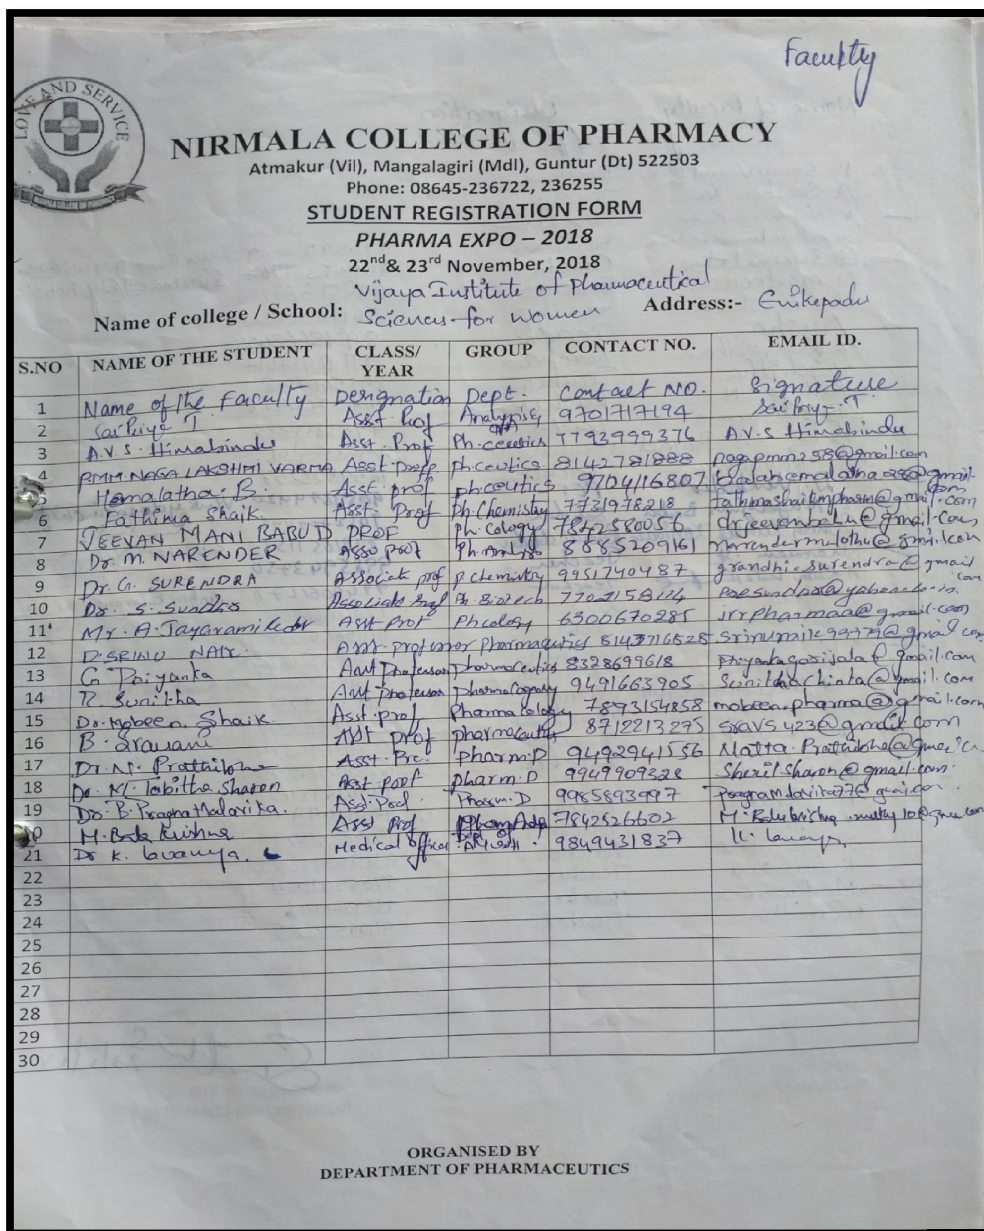 Faculty
LOVE AND SERVICE
NIRMALA COLLEGE OF PHARMACY
Atmakur (Vil), Mangalagiri (Mdl), Guntur (Dt) 522503
Phone: 08645-236722, 236255
STUDENT REGISTRATION FORM
PHARMA EXPO – 2018
22nd& 23rd November, 2018
Name of college / School: Vijaya Institute of Pharmaceutical Sciences for Women Address:- Enikepadu
S.NO NAME OF THE STUDENT CLASS/ YEAR GROUP CONTACT NO. EMAIL ID.
1 Name of the Faculty Designation Dept. Contact NO. Signature
2 Sai Priya T Asst. Prof Analysis 9701717194 Sai Priya. T
3 A.V.S. Himabindu Asst. Prof Ph.ceutics 7793999376 A.V.S Himabindu
4 PMM NAGA LAKSHMI VARMA Asst Prof Ph.ceutics 8142781888 nagapmm258@gmail.com
5 Hemalatha. B Asst. prof ph.ceutics 9704116807
6 Fathima Shaik. Asst. Prof Ph.Chemistry 7731978218 fathimashaikmpharm@gmail.com
7 JEEVAN MANI BABU D PROF Ph.Cology 7842580056 drjeevanbabu@gmail.com
8 Dr. M. NARENDER Asso prof 8885209161 narendermulothu@gmail.com
9 Dr. G. SURENDRA Associate prof P.chemistry 9951740487 grandhi.surendra@gmail.com
10 Dr. S. Associate Prof Ph. Biotech
11 Mr. A. Asst Prof Ph.cology 6300670285 irrpharmaa@gmail.com
12 D. SRINU NAIK. Asst. professor Pharmaceutics
13 G. Priyanka Asst Professor pharmaceutics 8328699618 priyankagorijala@gmail.com
14 R. Sunitha Asst professor 9491663905
15 Dr. Mobeen Shaik. Asst. prof Pharmacology 7893154858 mobeen.pharma@gmail.com
16 B. Sravani Asst prof pharmaceutics 8712213295 sravs423@gmail.com
17 Dr. N. Prathibha Asst. Pharm.D 9492941556
18 Dr. M. Tabitha Sharon Asst prof pharm.D 9949909328 Sheril sharon@gmail.com.
19 Dr. B. Pragna Malavika. Asst. Prof. Pharm.D 9985893997
20 M. Bala Krishna Asst Prof 7842526602
21 Dr K. Lavanya. Medical officer 9849431837 K. Lavanya
22
23
24
25
26
27
28
29
30
ORGANISED BY
DEPARTMENT OF PHARMACEUTICS